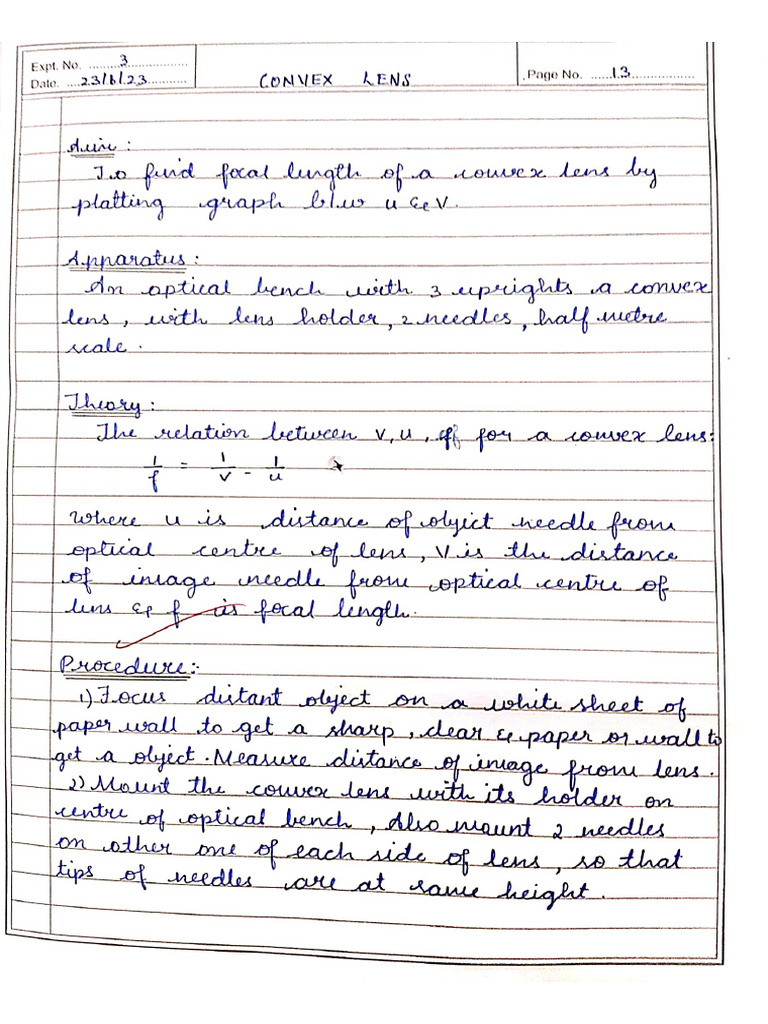 Expt. No. 3
Date. 23/6/23
CONVEX LENS
Page No. 13
Aim :
To find focal length of a convex lens by
platting graph b/w u & V.
Apparatus :
An optical bench with 3 uprights a convex
lens, with lens holder, 2 needles, half metre
scale.
Theory :
The relation between v, u, f for a convex lens:
1/f = 1/v - 1/u
where u is distance of object needle from
optical centre of lens, V is the distance
of image needle from optical centre of
lens & f is focal length.
Procedure :-
1) Focus distant object on a white sheet of
paper wall to get a sharp, clear & paper or wall to
get a object. Measure distance of image from lens.
2) Mount the convex lens with its holder on
centre of optical bench, Also mount 2 needles
on other one of each side of lens, so that
tips of needles are at same height.